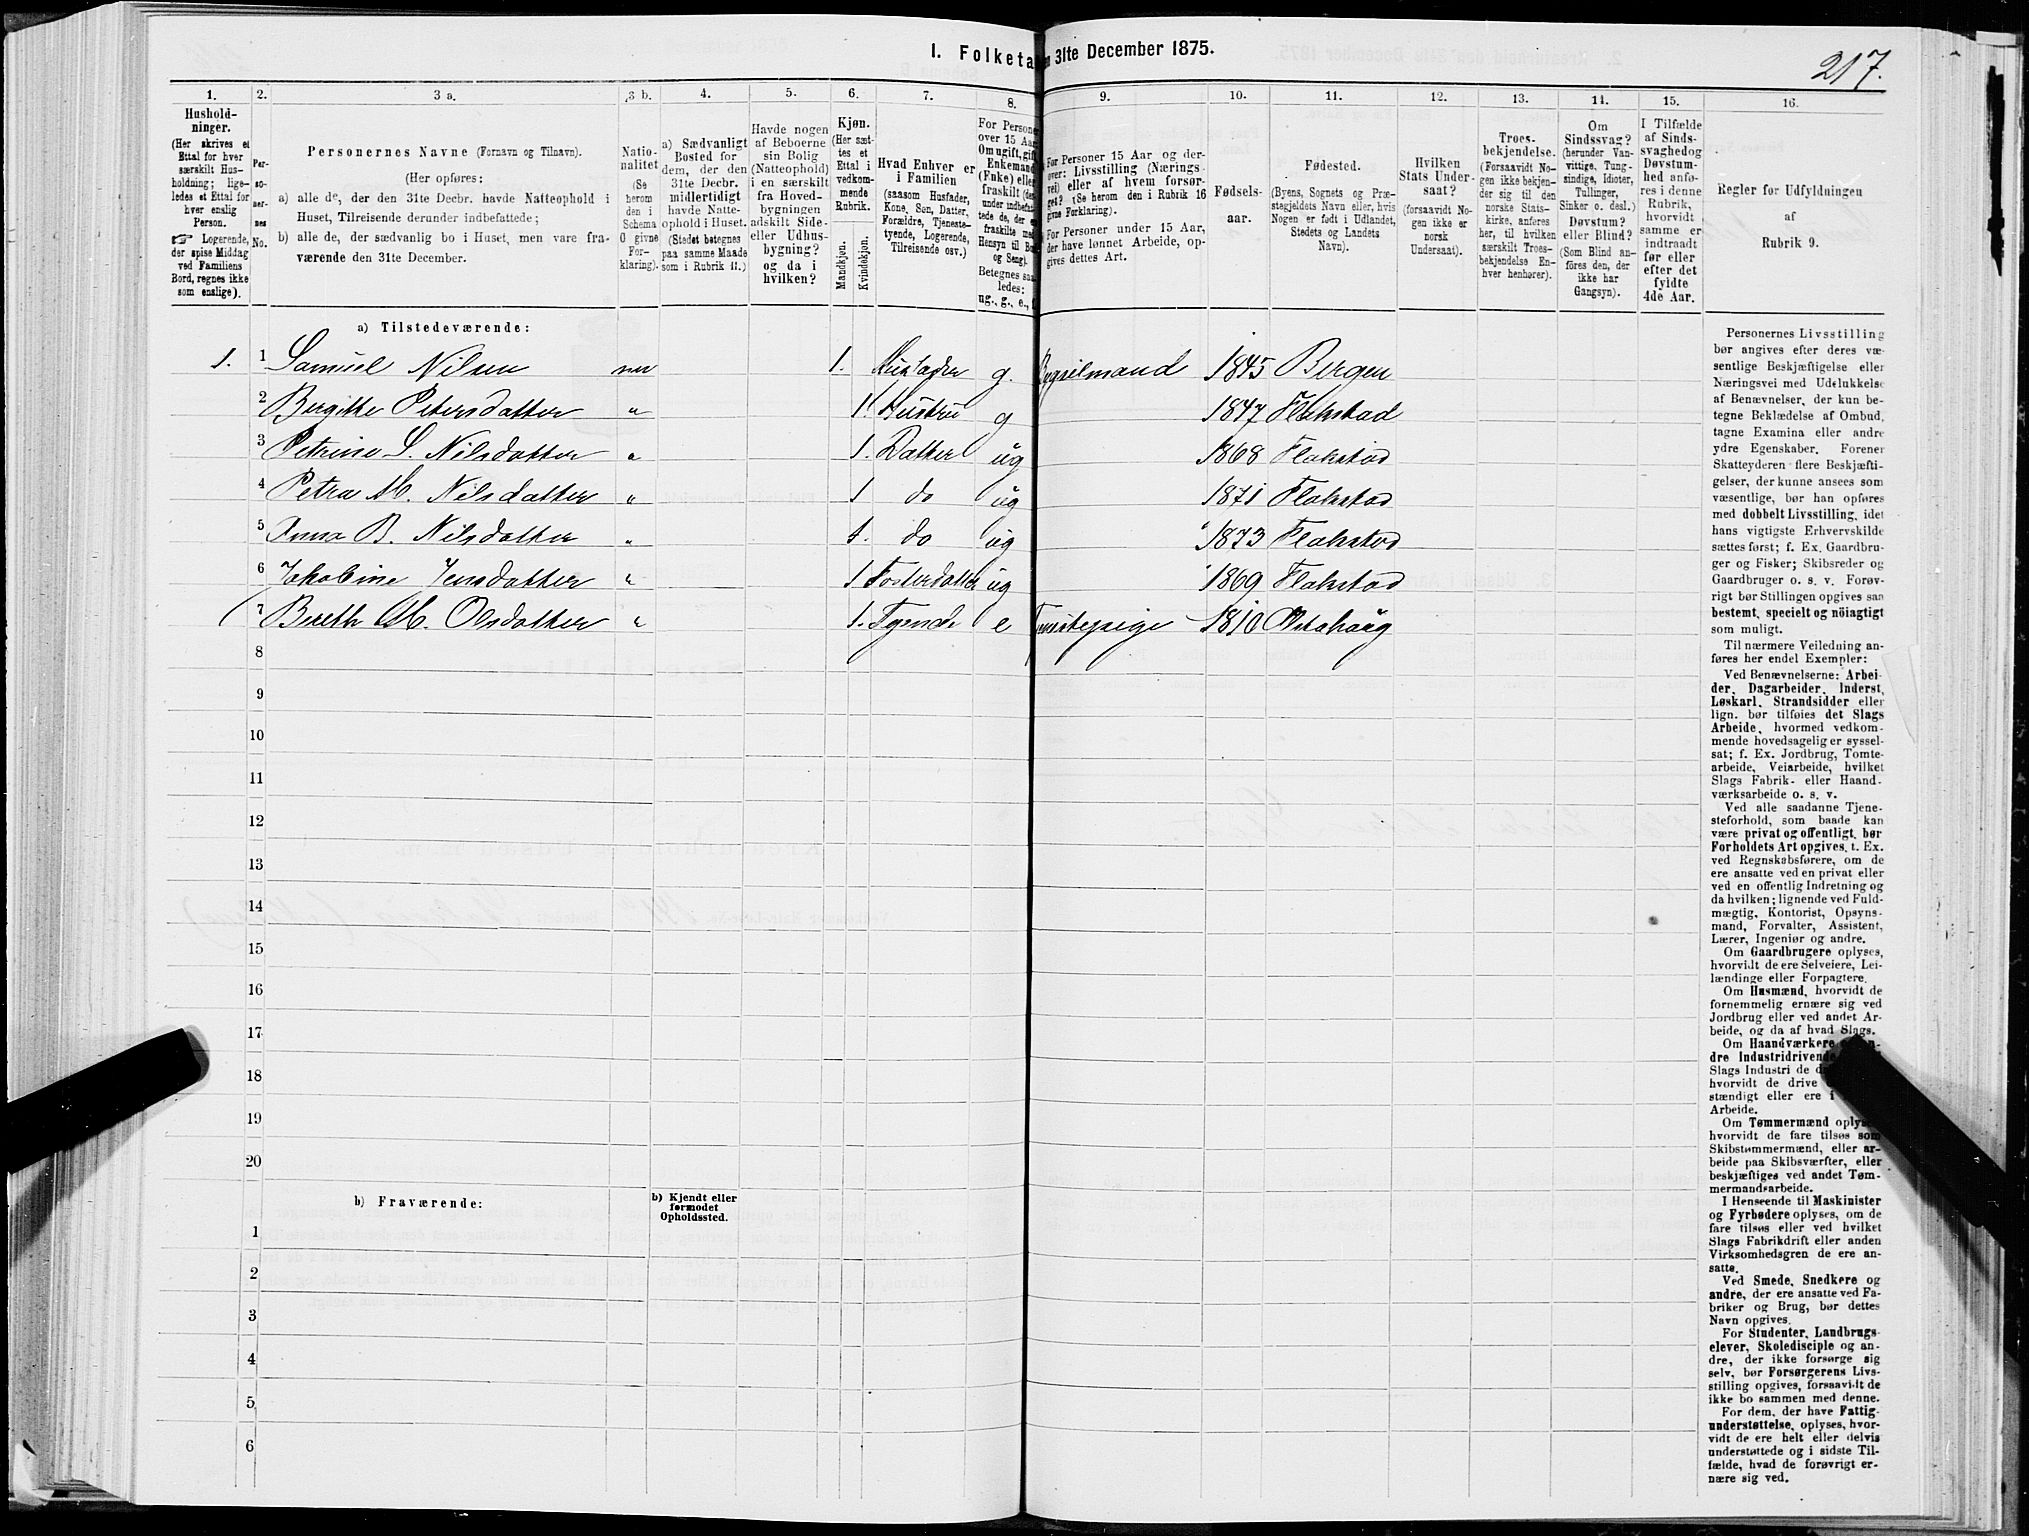 I. Folketa n 31te December 1875.
217.
1. 2. 3 a. 3 b. 4. 5. 6. 7. 8. 9. 10. 11. 12. 13. 14. 15. 16.
Hushold-
ninger.
(Her skrives et
Ettal for hver
særskilt Hus-
holdning; lige-
ledes et Ettal for
hver enslig
Person.
☞ Logerende,
der spise Middag
ved Familiens
Bord, regnes ikke
som enslige).
Per-
so-
ner-
nes
No.
Personernes Navne (Fornavn og Tilnavn).
(Her opføres:
a) alle de, der den 31te Decbr. havde Natteophold i
Huset, Tilreisende derunder indbefattede;
b) alle de, der sædvanlig bo i Huset, men vare fra-
værende den 31te December.
Natio-
nalitet
(Se
herom
den i
Schema
O givne
For-
klaring).
a) Sædvanligt
Bosted for
dem, der den
31te Decbr.
midlertidigt
havde Natte-
ophold i Huset.
(Stedet betegnes
paa samme Maade
som i Rubrik 11.)
Havde nogen
af Beboerne
sin Bolig
(Natteophold)
i en særskilt
fra Hoved-
bygningen
adskilt Side-
eller Udhus-
bygning?
og da i
hvilken?
Kjøn.
(Her sæt-
tes et
Ettal i
vedkom-
mende
Rubrik.
Mandkjøn.
Kvindekjøn.
Hvad Enhver er
i Familien
(saasom Husfader,
Kone, Søn, Datter,
Forældre, Tjeneste-
tyende, Logerende,
Tilreisende osv.)
For Persone
over 15 Aar
Om ugift, gift
Enkemand
(Enke) eller
fraskilt (der-
under indbefat-
tede de, der er
fraskilte med
Hensyn til Bo
og Seng).
Betegnes saa-
ledes:
ug., g., e., f.
For Personer 15 Aar og der-
over: Livsstilling (Nærings-
vei) eller af hvem forsør-
get? (Se herom den i Rubrik 16
givne Forklaring).
For Personer under 15 Aar,
der have lønnet Arbeide, op-
gives dettes Art.
Fødsels-
aar.
Fødested.
(Byens, Sognets og Præ-
stegjeldets Navn eller, hvis
Nogen er født i Udlandet,
Stedets og Landets
Navn).
Hvilken
Stats Under-
saat?
(forsaavidt No-
gen ikke er
norsk
Undersaat).
Troes-
bekjendelse.
(Forsaavidt No-
gen ikke bekjen-
der sig til den
norske Stats-
kirke, anføres
her, til hvilken
særskilt Troes-
bekjendelse En-
hver henhører).
Om
Sindssvag?
(herunder Van-
vittige, Tung-
sindige, Idioter,
Tullinger,
Sinker o. desl.)
Døvstum?
eller Blind?
(Som Blind an-
føres den, der
ikke har
Gangsyn).
I Tilfælde
af Sinds-
svaghed og
Døvstum-
hed anfø-
res i denne
Rubrik,
hvorvidt
samme er
indtraadt
før eller
efter det
fyldte
4de Aar.
Regler for Udfyldningen
af
Rubrik 9.
a) Tilstedeværende:
1. 1 Samuel Nilsen nor 1. Husfader g. Bygselmand 1845 Bergen
2 Bergitte Petersdatter " 1. Hustru g 1847 Flakstad
3 Petrine S. Nilsdatter " 1. Datter ug 1868 Flakstad
4 Petra M. Nilsdatter " 1 do ug 1871 Flakstad
5 Anna B. Nilsdatter " 1. do ug 1873 Flakstad
6 Jakobine Jensdatter " 1 Fosterdatter ug 1869 Flakstad
7 Bereth M. Olsdatter " 1. Tyende e Tjenstepige 1810
8
9
10
11
12
13
14
15
16
17
18
19
20
b) Fraværende:
b) Kjendt eller
formodet
Opholdssted.
1
2
3
4
5
6
Personernes Livsstilling
bør angives efter deres væ-
sentlige Beskjæftigelse eller
Næringsvei med Udelukkelse
af Benævnelser, der kun be-
tegne Beklædelse af Ombud,
tagne Examina eller andre
ydre Egenskaber. Forener
Skatteyderen flere Beskjæfti-
gelser, der kunne ansees som
væsentlige, bør han opføres
med dobbelt Livsstilling, idet
hans vigtigste Erhvervskilde
sættes først; f. Ex. Gaardbru-
ger og Fisker; Skibsreder og
Gaardbruger o. s. v. Forøv-
rigt bør Stillingen opgives saa
bestemt, specielt og nöiagtigt
som muligt.
Til nærmere Veiledning an-
føres her endel Exempler:
Ved Benævnelserne: Arbei-
der, Dagarbeider, Inderst,
Løskarl, Strandsidder eller
lign. bør tilføies det Slags
Arbeide, hvormed vedkom-
mende hovedsagelig er syssel-
sat; f. Ex. Jordbrug, Tomte-
arbeide, Veiarbeide, hvilket
Slags Fabrik- eller Haand-
værksarbeide o. s. v.
Ved alle saadanne Tjene-
steforhold, som baade kan
være privat og offentligt, bør
Forholdets Art opgives, t. Ex.
ved Regnskabsførere, om de
ere ansatte ved en privat eller
ved en offentlig Indretning og
da hvilken; lignende ved Fuld-
mægtig, Kontorist, Opsyns-
mand, Forvalter, Assistent,
Lærer, Ingeniør og andre.
Om Gaardbrugere oplyses,
hvorvidt de ere Selveiere, Lei-
lændinge eller Forpagtere.
Om Husmænd, hvorvidt de
fornemmelig ernære sig ved
Jordbrug eller ved andet Ar-
beide, og da af hvad Slags.
Om Haandværkere
dre Industridrivende
Slags Industri de
hvorvidt de drive
stændigt eller ere i
Arbeide.
Om Tømmermænd oplyses
hvorvidt de fare tilsøs som
Skibstømmermænd, eller ar-
beide paa Skibsværfter, eller
beskjæftiges ved andet Tøm-
mermandsarbeide.
I Henseende til Maskinister
og Fyrbødere oplyses, om de
fare tilsøs eller ved hvilket
Slags Fabrikdrift eller anden
Virksomhedsgren de ere an-
satte.
Ved Smede, Snedkere og
andre, der ere ansatte ved Fa-
briker og Brug, bør dettes
Navn opgives.
For Studenter, Landbrugs-
elever, Skoledisciple og an-
dre, der ikke forsørge sig
selv, bør Forsørgerens Livs-
stilling opgives, forsaavidt de
ikke bo sammen med denne.
For dem, der have Fattig-
understøttelse, oplyses, hvor-
vidt de ere helt eller delvis
understøttede og i sidste Til-
fælde, hvad de forøvrigt er-
nære sig ved.